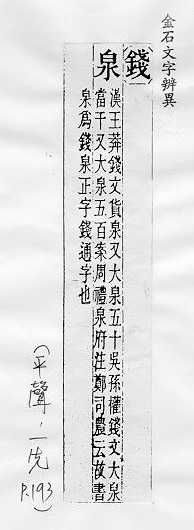 金石文字辨異
錢
泉
漢王莽錢文貨泉又大泉五十吳孫權錢文大泉
當千又大泉五百案周禮泉府注鄭司農云故書
泉爲錢泉正字錢通字也
(平聲·一先
P.193)